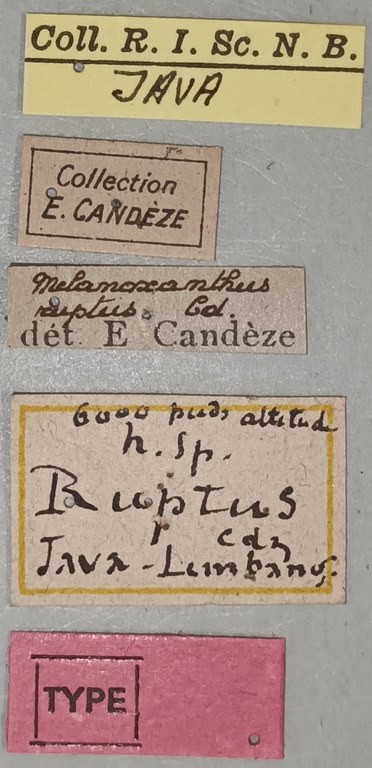 Coll. R. I. Sc. N. B.
JAVA
Collection
E. CANDÈZE
Melanoxanthus
ruptus. Cd.
dét E Candèze
6000 pieds altitude
n. sp.
Ruptus
r Cdz
Java - Lembang.
TYPE